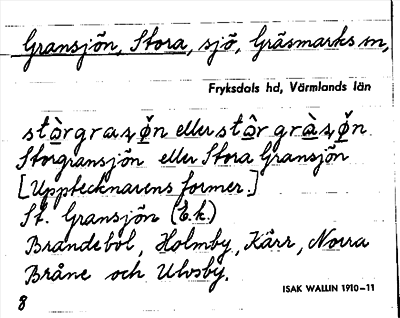 Gransjön, Stora, sjö, Gräsmarks sn,
Fryksdals hd, Värmlands län
stàrgrasøn eller stâr gràsøn
Storgransjön eller Stora Gransjön
[Upptecknarens former.]
St. Gransjön (E.k.)
Brandebol, Holmby, Kärr, Norra
Bråne och Ulvsby.
ISAK WALLIN 1910-11
8